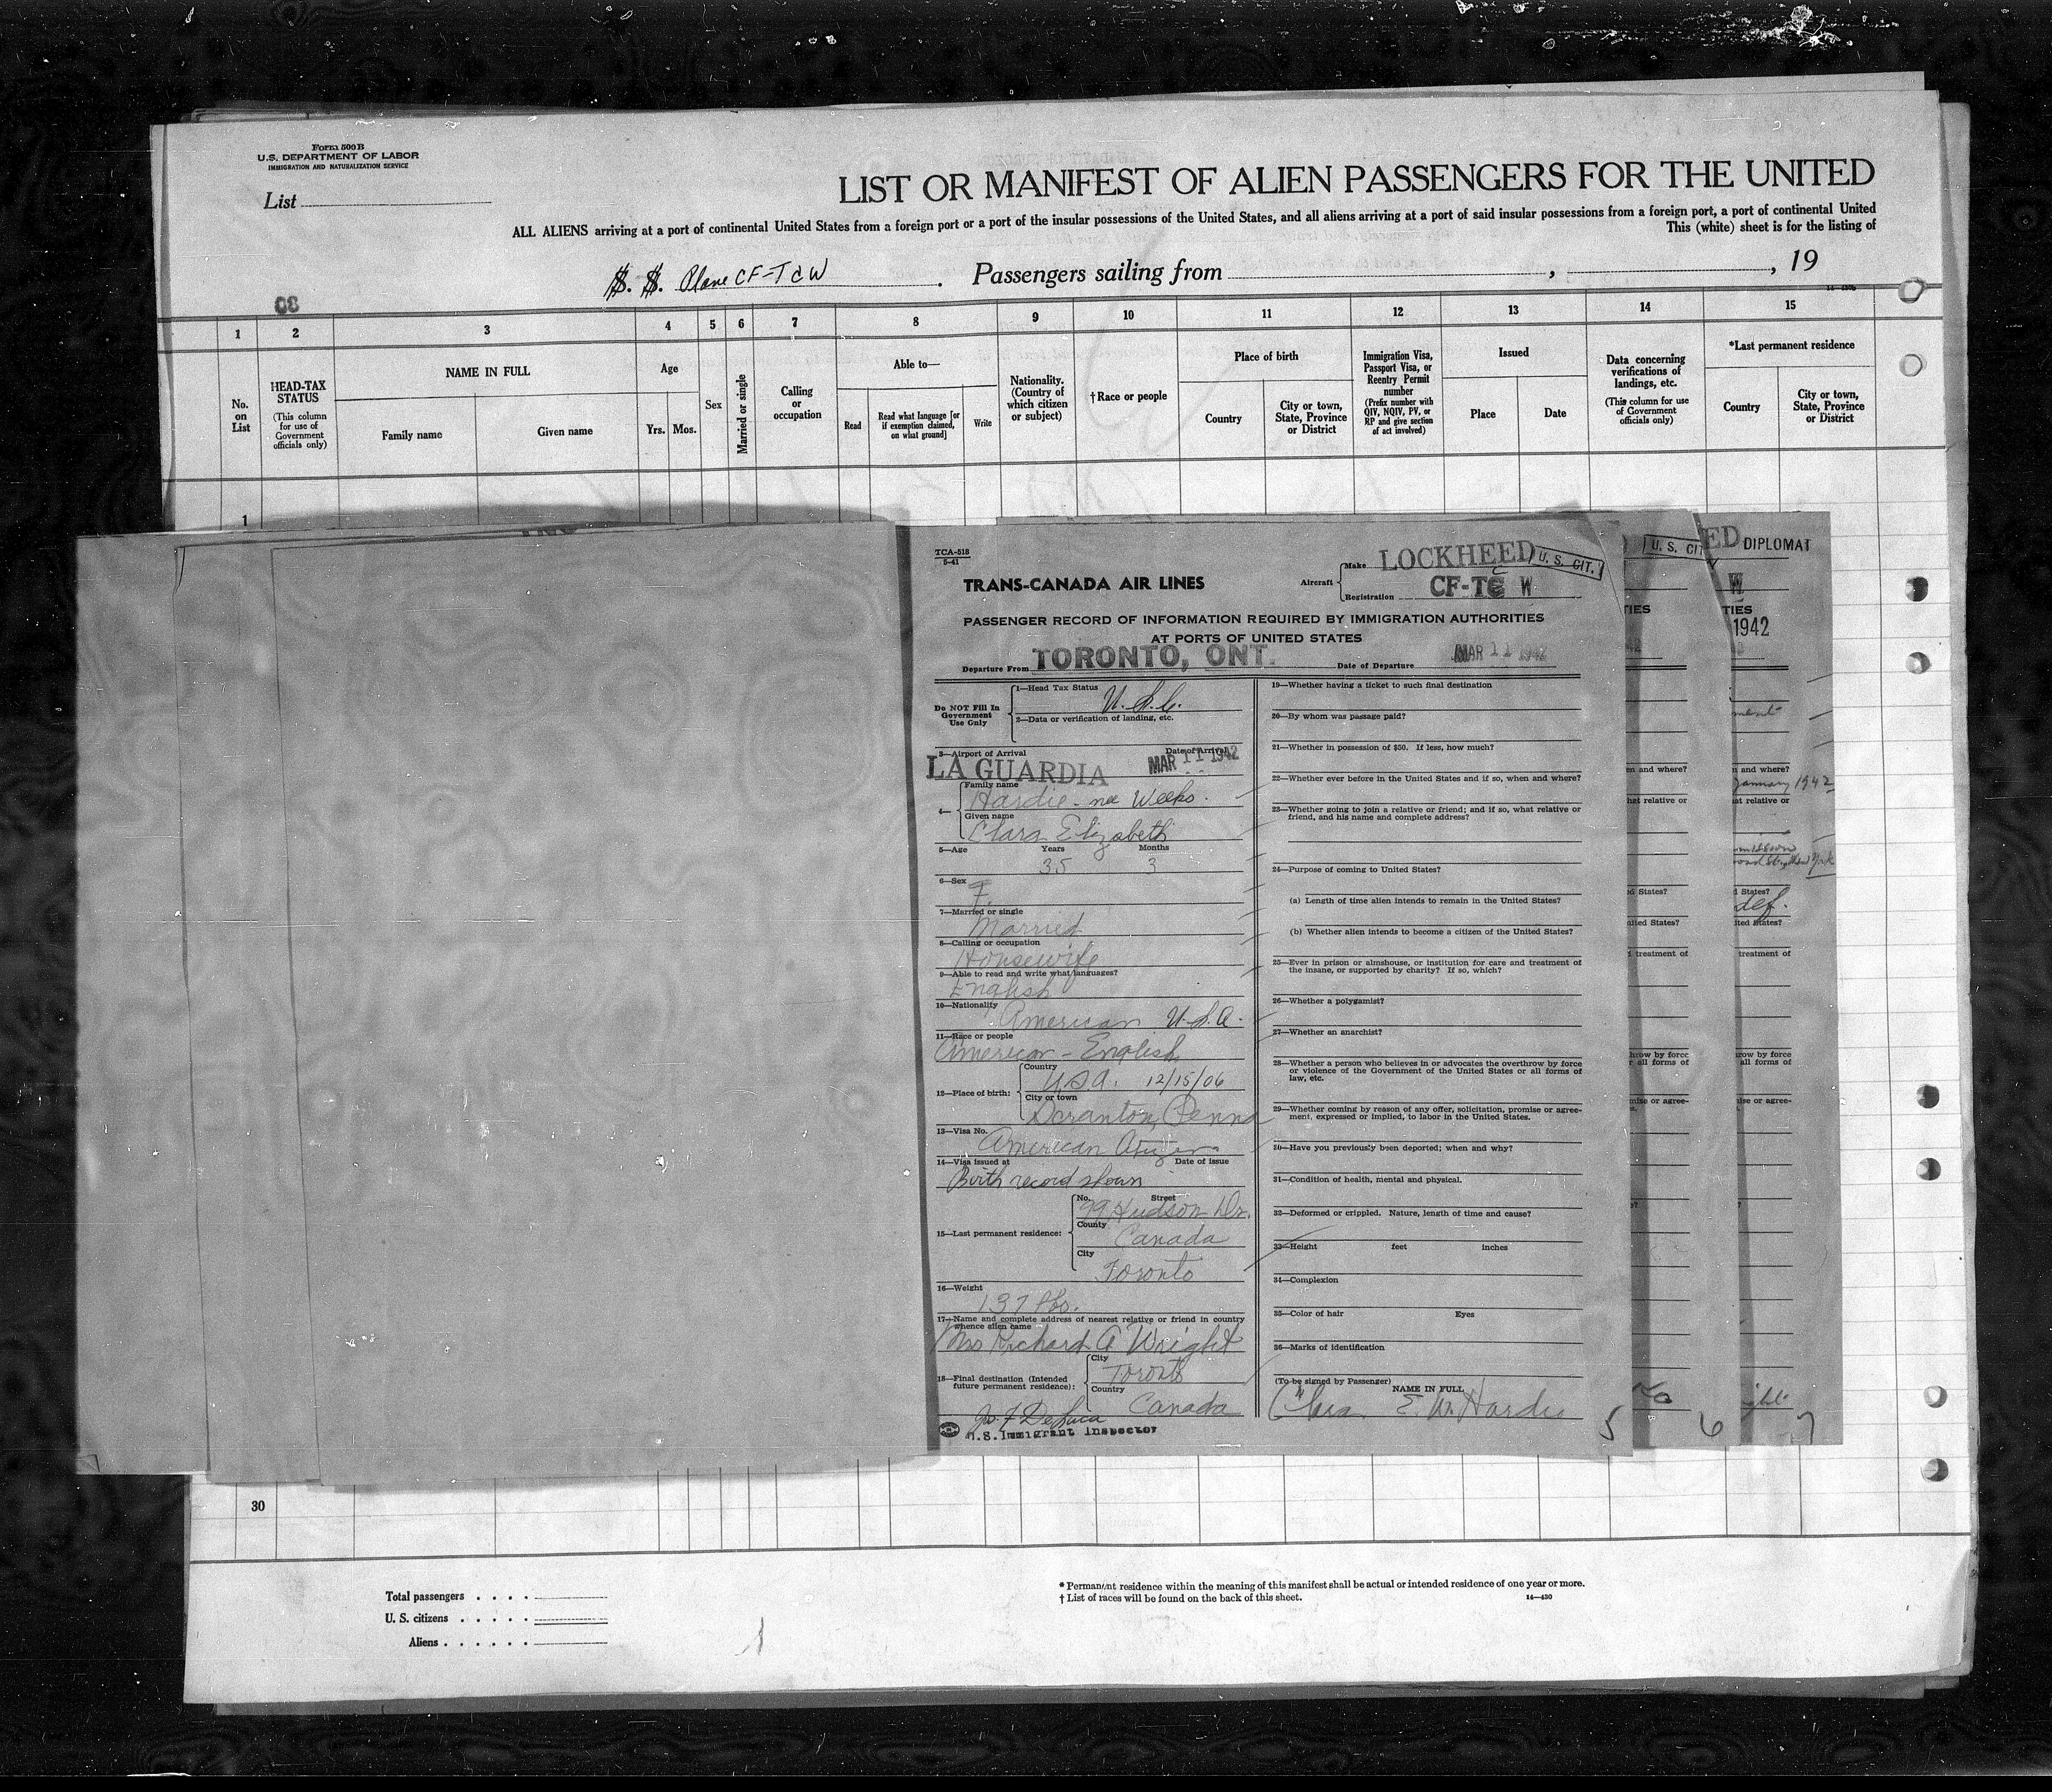 Form 500B
U.S. DEPARTMENT OF LABOR
IMMIGRATION AND NATURALIZATION SERVICE
List
LIST OR MANIFEST OF ALIEN PASSENGERS FOR THE UNITED
ALL ALIENS arriving at a port of continental United States from a foreign port or a port of the insular possessions of the United States, and all aliens arriving at a port of said insular possessions from a foreign port, a port of continental United
This (white) sheet is for the listing of
S. S. Plane CF-TCW . Passengers sailing from , , 19
08
1 2 3 4 5 6 7 8 9 10 11 12 13 14 15
No. on List
HEAD-TAX STATUS
(This column for use of Government officials only)
NAME IN FULL
Family name
Given name
Age
Yrs. Mos.
Sex
Married or single
Calling or occupation
Able to—
Read
Read what language [or if exemption claimed, on what ground]
Write
Nationality. (Country of which citizen or subject)
†Race or people
Place of birth
Country
City or town, State, Province or District
Immigration Visa, Passport Visa, or Reentry Permit number
(Prefix number with QIV, NQIV, PV, or RP and give section of act involved)
Issued
Place
Date
Data concerning verifications of landings, etc.
(This column for use of Government officials only)
*Last permanent residence
Country
City or town, State, Province or District
1
TCA-518
5-41
TRANS-CANADA AIR LINES
Aircraft
Make LOCKHEED
U. S. CIT.
Registration CF-TC W
PASSENGER RECORD OF INFORMATION REQUIRED BY IMMIGRATION AUTHORITIES
AT PORTS OF UNITED STATES
Departure From TORONTO, ONT.
Date of Departure MAR 11 1942
Do NOT Fill In
Government
Use Only
1—Head Tax Status
U.S.C.
2—Data or verification of landing, etc.
3—Airport of Arrival
Date of Arrival
LA GUARDIA MAR 11 1942
4—
Family name
Hardie - nee Weeks.
Given name
Clara Elizabeth
5—Age Years Months
35 3
6—Sex
F.
7—Married or single
Married
8—Calling or occupation
Housewife
9—Able to read and write what languages?
English
10—Nationality
American U.S.A.
11—Race or people
American - English
12—Place of birth:
Country
U.S.A. 12/15/06
City or town
Scranton, Penna
13—Visa No.
American Citizen
14—Visa issued at Date of issue
Birth record shown
15—Last permanent residence:
No. Street
99 Hudson Dr.
County
Canada
City
Toronto
16—Weight
137 lbs.
17—Name and complete address of nearest relative or friend in country
whence alien came
Mrs Richard A Wright
18—Final destination (Intended
future permanent residence):
City
Toronto
Country
Canada
U.S. Immigrant Inspector
19—Whether having a ticket to such final destination
20—By whom was passage paid?
21—Whether in possession of $50. If less, how much?
22—Whether ever before in the United States and if so, when and where?
23—Whether going to join a relative or friend; and if so, what relative or
friend, and his name and complete address?
24—Purpose of coming to United States?
(a) Length of time alien intends to remain in the United States?
(b) Whether alien intends to become a citizen of the United States?
25—Ever in prison or almshouse, or institution for care and treatment of
the insane, or supported by charity? If so, which?
26—Whether a polygamist?
27—Whether an anarchist?
28—Whether a person who believes in or advocates the overthrow by force
or violence of the Government of the United States or all forms of
law, etc.
29—Whether coming by reason of any offer, solicitation, promise or agree-
ment, expressed or implied, to labor in the United States.
30—Have you previously been deported; when and why?
31—Condition of health, mental and physical.
32—Deformed or crippled. Nature, length of time and cause?
33—Height feet inches
34—Complexion
35—Color of hair Eyes
36—Marks of identification
(To be signed by Passenger) NAME IN FULL
Clara E. W. Hardie
5
U. S. CIT
TIES
6
ED DIPLOMAT
W
TIES
1942
and where?
January 1942
at relative or
States?
def.
ited States?
treatment of
row by force
all forms of
ise or agree-
7
30
Total passengers
U. S. citizens
Aliens
* Permanent residence within the meaning of this manifest shall be actual or intended residence of one year or more.
† List of races will be found on the back of this sheet.
14—430